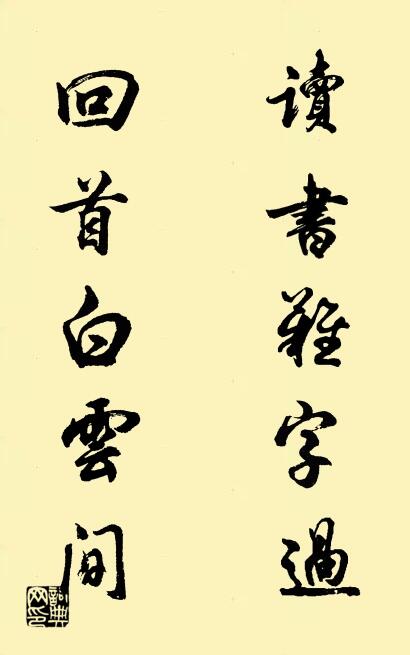 讀書難字過
回首白雲間